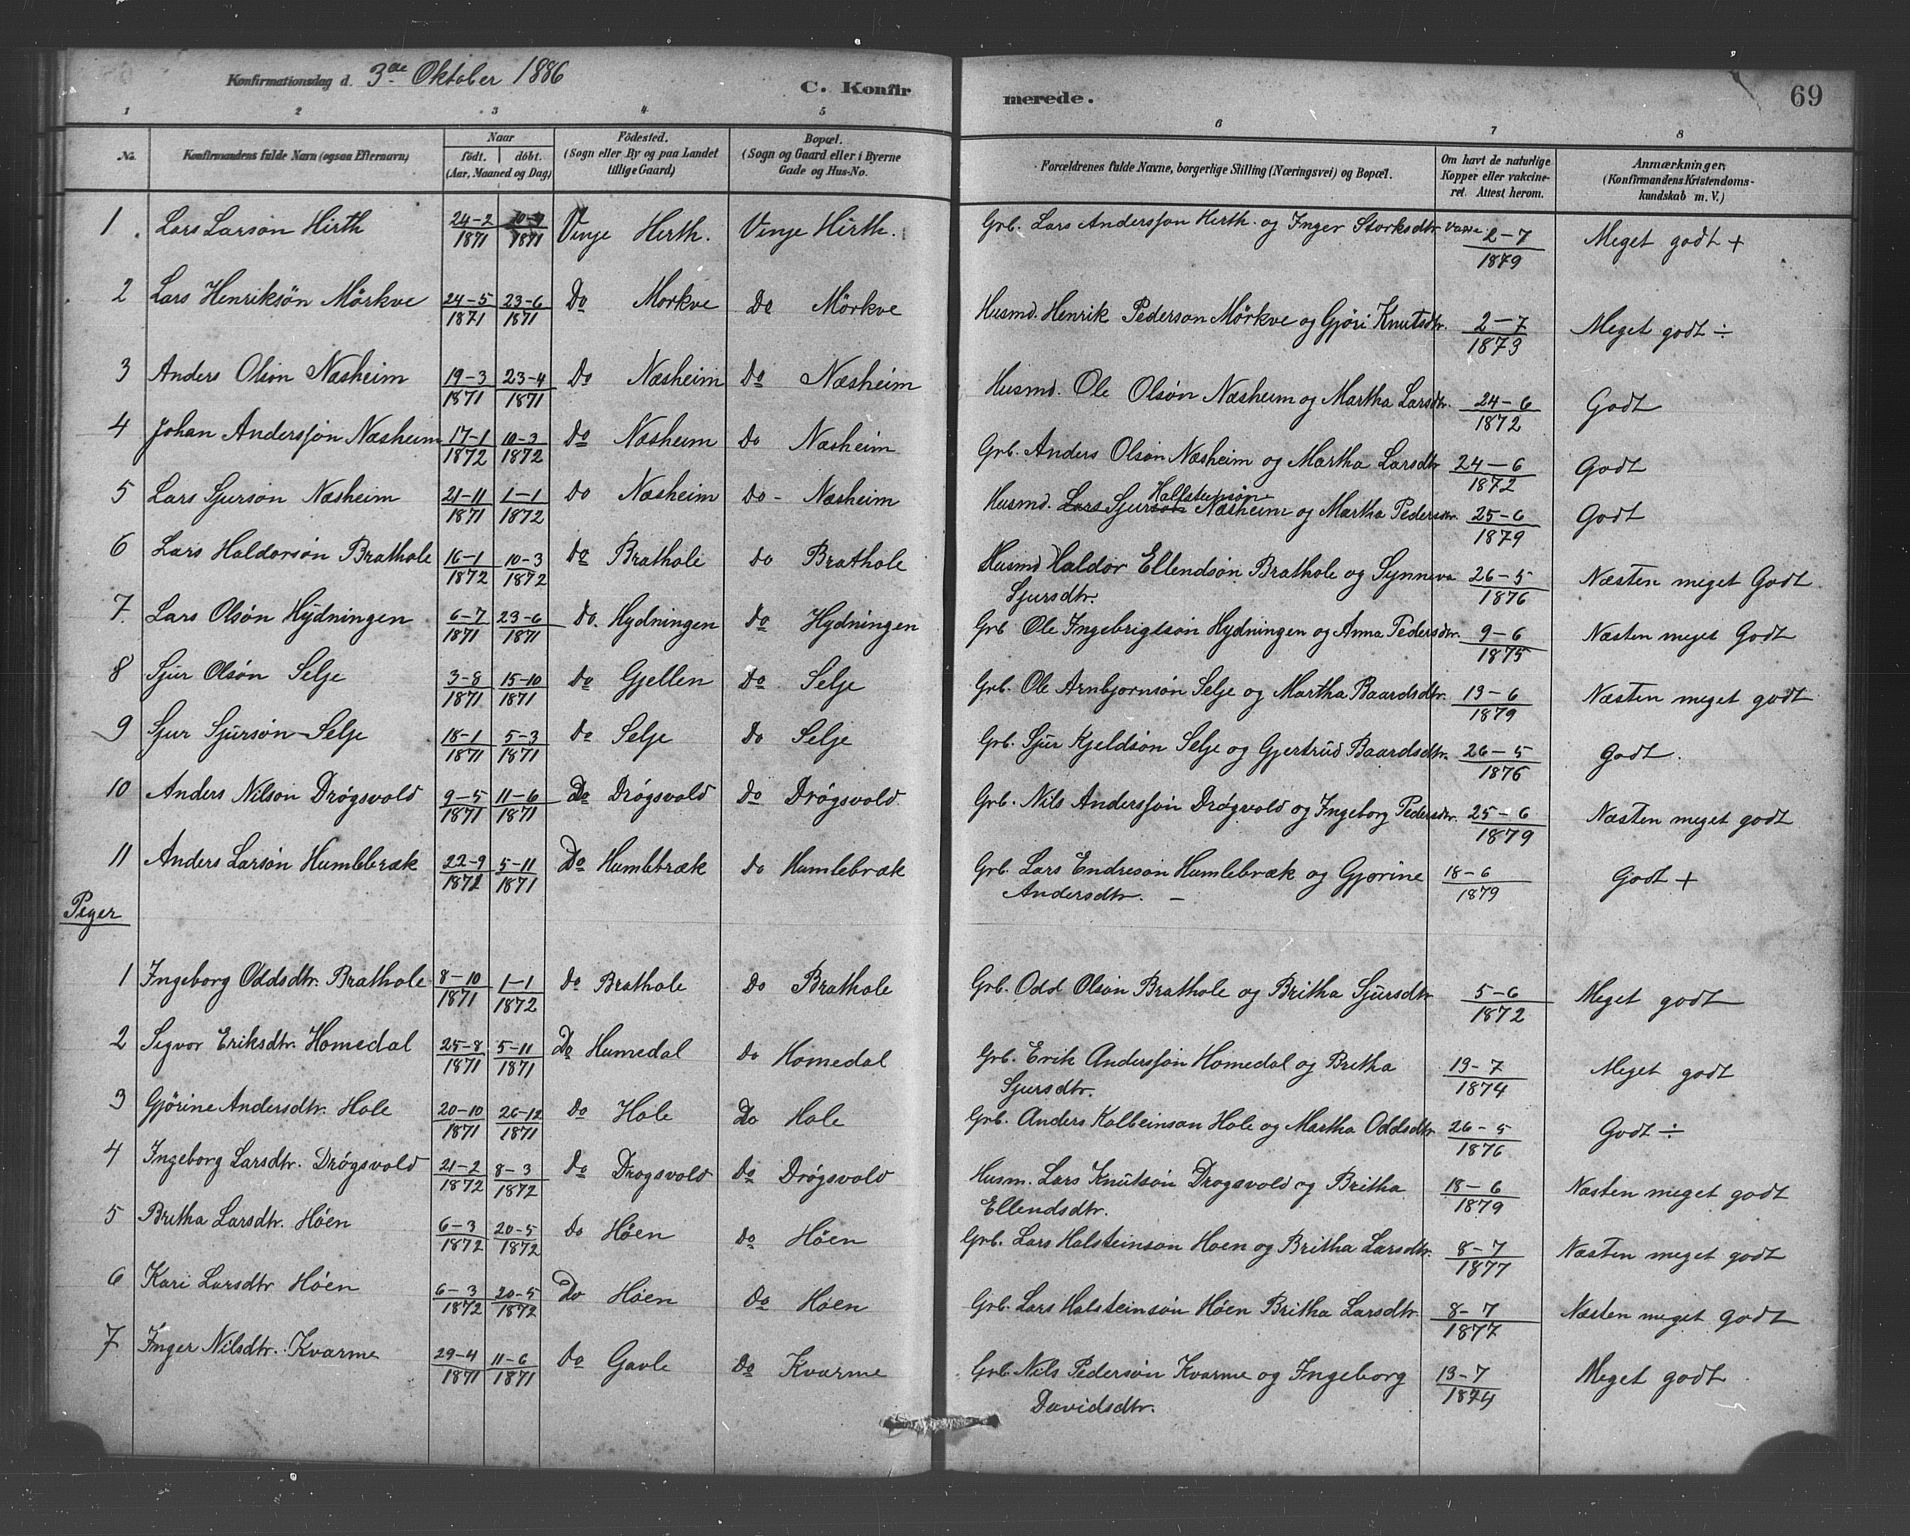 Konfirmationsdag d. 3de Oktober 1886
C. Konfirmerede.
69
1 2 3 4 5 6 7 8
No. | Konfirmandens fulde Navn (ogsaa Efternavn) | Naar født. døbt. (Aar, Maaned og Dag) | Födested. (Sogn eller By og paa Landet tillige Gaard) | Bopæl. (Sogn og Gaard eller i Byerne Gade og Hus-No. | Forældrenes fulde Navne, borgerlige Stilling (Næringsvei) og Bopæl. | Om havt de naturlige Kopper eller vakcineret. Attest herom. | Anmærkninger. (Konfirmandens Kristendomskundskab m. V.)
1 Lars Larsøn Hirth 24-2 1871 10-4 1871 Vinje Hirth. Vinje Hirth. Grb. Lars Anderssøn Hirth og Inger Storksdtr 2-7 1879 Meget godt +
2 Lars Henriksøn Mörkve 24-5 1871 23-6 1871 Do Mörkve Do Mörkve Husmd. Henrik Pedersøn Mörkve og Gjöri Knutsdtr. 2-7 1873 Meget godt ÷
3 Anders Olsøn Næsheim 19-3 1871 23-4 1871 Do Næsheim Do Næsheim Husmd. Ole Olsøn Næsheim og Martha Larsdtr. 24-6 1872 Godt
4 Johan Anderssøn Næsheim 17-1 1872 10-3 1872 Do Næsheim Do Næsheim Grb. Anders Olsøn Næsheim og Martha Larsdtr 24-6 1872 Godt
5 Lars Sjursøn Næsheim 21-11 1871 1-1 1872 Do Næsheim Do - Næsheim Husmd. Lars Sjursøn Halfsteinsøn Næsheim og Martha Pedersdtr. 25-6 1879 Godt
6 Lars Haldorsøn Brathole 16-1 1872 10-3 1872 Do Brathole Do Brathole Husmd Haldor Ellendsøn Brathole og Synneva Sjursdtr. 26-5 1876 Næsten meget Godt
7. Lars Olsøn Hydningen 6-7 1871 23-6 1871 Do. Hydningen Do Hydningen Grb Ole Ingebrigtsøn Hydningen og Anna Pedersdtr. 9-6 1875 Næsten meget Godt
8 Sjur Olsøn Selje 3-8 1871 15-10 1871 Do Gjellen Do Selje Grb. Ole Arnbjornsøn Selje og Martha Baardsdtr. 19-6 1879 Næsten meget godt
9 Sjur Sjursøn Selje 18-1 1871 5-3 1871 Do Selje Do Selje Grb. Sjur Kjeldsøn Selje og Gjertrud Baardsdtr. 26-5 1876 Godt.
10 Anders Nilsøn Drøgsvold 9-5 1871 11-6 1871 Do Drøgsvold Do Drøgsvold Grb. Nils Anderssøn Drøgvold og Ingeborg Pedersdtr. 25-6 1879 Næsten meget godt
11 Anders Larsøn Humlebræk 22-9 1871 5-11 1871 Do Humlebræk Do Humlebræk Grb. Lars Endresøn Humlebræk og Gjørine Andersdtr. - 18-6 1879 Godt +
Piger
1 Ingeborg Oddsdtr. Brathole 8-10 1871 1-1 1872 Do Brathole Do Brathole Grb. Odd Olsøn Brathole og Britha Sjursdtr 5-6 1872 Meget godt
2 Sigvor Eriksdtr. Homedal 25-8 1871 5-11 1871 Do Humedal Do Homedal Grb. Erik Anderssøn Homedal og Britha Sjursdtr. 19-7 1874 Meget godt
3 Gjørine Andersdtr. Hole 20-10 1871 26-12 1871 Do Hole Do Hole Grb. Anders Kolbeinsøn Hole og Martha Oddsdtr 26-5 1876 Godt ÷
4 Ingeborg Larsdtr. Drøgsvold 21-2 1872 8-3 1872 Do Drøgsvold Do Drøgsvold Husm. Lars Knutsøn Drøgsvold og Britha Ellendsdtr. 18-6 1879 Næsten meget godt
5 Britha Larsdtr. Høen 6-3 1872 20-5 1872 Do Høen Do Høen Grb. Lars Halsteinsøn Høen og Britha Larsdtr. 8-7 1877 Næsten meget godt
6 Kari Larsdtr Høen 6-3 1872 20-5 1872 Do Høen Do Høen Grb. Lars Halsteinsøn Høen Britha Larsdtr. 8-7 1877 Næsten meget godt
7 Inger Nilsdtr. Kvarme 29-4 1871 11-6 1871 Do Gavle Do Kvarme Grb. Nils Pedersøn Kvarme og Ingeborg Davidsdtr. 19-7 1874 Meget godt